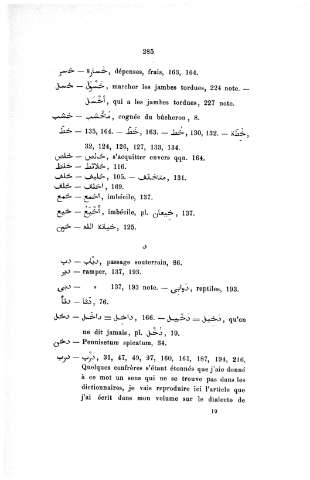 285
خسر — خسارة, dépenses, frais, 163, 164.
خسل — خَسْوَل, marcher les jambes tordues, 224 note. —
أخسل, qui a les jambes tordues, 227 note.
خشب — مخشب, cognée du bûcheron, 8.
خطّ — 135, 144. — خط, 163. — خط, 130, 132. — خطّة,
32, 124, 126, 127, 133, 134.
خلص — خلص, s'acquitter envers qqn. 164.
خلط — خلائط, 116.
خلف — خليف, 105. — متاخلف, 131.
خلف — اختلف, 169.
خمع — اخمع, imbécile, 137.
خيع — أخيع, imbécile, pl. خيعان, 137.
خين — خيانة الله, 125.
د
دب — دبّاب, passage souterrain, 86.
دبر — ramper, 137, 193.
دبى — » 137, 193 note. — دوابى, reptiles, 193.
دفا — دفّا, 76.
دخل — داخل = داخّل, 166. — دخيل = دخّيل, qu'on
ne dit jamais, pl. دخل, 19.
دخن — Pennisetum spicatum, 34.
درب — درب, 31, 47, 49, 97, 160, 161, 187, 194, 216.
Quelques confrères s'étant étonnés que j'aie donné
à ce mot un sens qui ne se trouve pas dans les
dictionnaires, je vais reproduire ici l'article que
j'ai écrit dans mon volume sur le dialecte de
19